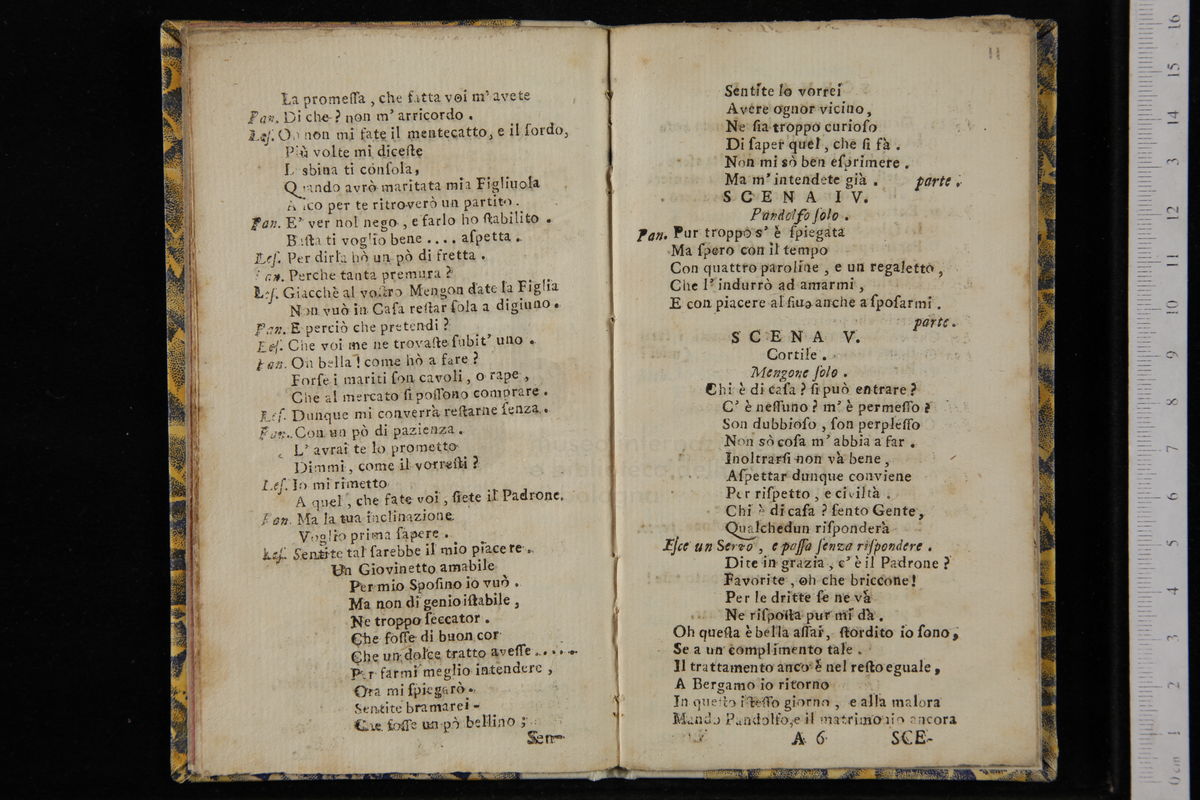 La promeſſa, che fatta voi m' avete
Pan. Di che? non m' arricordo.
Leſ. Oh non mi fate il mentecatto, e il ſordo,
Più volte mi diceſte
Lesbina ti conſola,
Quando avrò maritata mia Figliuola
Anco per te ritroverò un partito.
Pan. E' ver nol nego, e farlo ho ſtabilito.
Baſta ti voglio bene.... aſpetta.
Leſ. Per dirla hò un pò di fretta.
Pan. Perche tanta premura?
Leſ. Giacchè al voſtro Mengon date la Figlia
Non vuò in Caſa reſtar ſola a digiuno.
Pan. E perciò che pretendi?
Leſ. Che voi me ne trovaſte ſubit' uno.
Pan. Oh bella! come hò a fare?
Forſe i mariti ſon cavoli, o rape,
Che al mercato ſi poſſono comprare.
Leſ. Dunque mi converrà reſtarne ſenza.
Pan. Con un pò di pazienza.
L' avrai te lo prometto
Dimmi, come il vorreſti?
Leſ. Io mi rimetto
A quel, che fate voi, ſiete il Padrone.
Pan. Ma la tua inclinazione
Voglio prima ſapere.
Leſ. Sentite tal ſarebbe il mio piacere.
Un Giovinetto amabile
Per mio Spoſino io vuò.
Ma non di genio iſtabile,
Ne troppo ſeccator.
Che foſſe di buon cor
Che un dolce tratto aveſſe.....
Per farmi meglio intendere,
Ora mi ſpiegarò.
Sentite bramarei -
Che foſſe un pò bellino;
Sen-
11
Sentite io vorrei
Avere ognor vicino,
Ne ſia troppo curioſo
Di ſaper quel, che ſi fà.
Non mi sò ben eſprimere.
Ma m' intendete già. parte.
SCENA IV.
Pandolfo ſolo.
Pan. Pur troppo s' è ſpiegata
Ma ſpero con il tempo
Con quattro paroline, e un regaletto,
Che l' indurrò ad amarmi,
E con piacere al ſiuo anche a ſpoſarmi.
parte.
SCENA V.
Cortile.
Mengone ſolo.
Chi è di caſa? ſi può entrare?
C' è neſſuno? m' è permeſſo?
Son dubbioſo, ſon perpleſſo
Non sò coſa m' abbia a far.
Inoltrarſi non và bene,
Aſpettar dunque conviene
Per riſpetto, e civiltà.
Chi è di caſa? ſento Gente,
Qualchedun riſponderà
Eſce un Servo, e paſſa ſenza riſpondere.
Dite in grazia, c' è il Padrone?
Favorite, oh che briccone!
Per le dritte ſe ne và
Ne riſpoſta pur mi dà.
Oh queſta è bella aſſai, ſtordito io ſono,
Se a un complimento tale.
Il trattamento anco è nel reſto eguale,
A Bergamo io ritorno
In queſto iſteſſo giorno, e alla malora
Mando Pandolfo, e il matrimonio ancora
A 6 SCE-